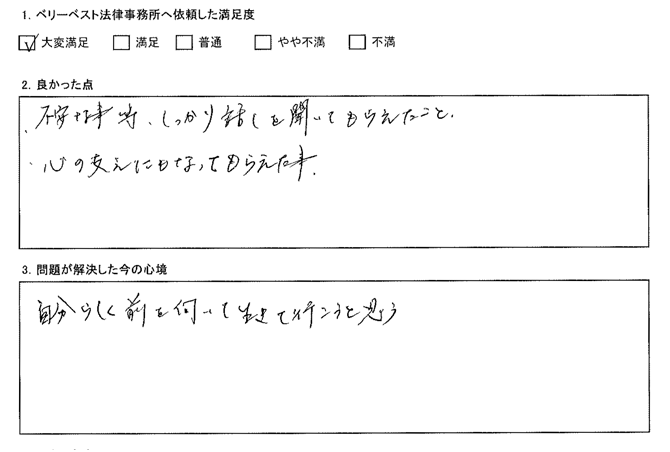 1. ベリーベスト法律事務所へ依頼した満足度
大変満足 満足 普通 やや不満 不満
2. 良かった点
・不安な事等、しっかり話しを聞いてもらえたこと.
・心の支えにもなってもらえた事.
3. 問題が解決した今の心境
自分らしく前を向いて生きて行こうと思う